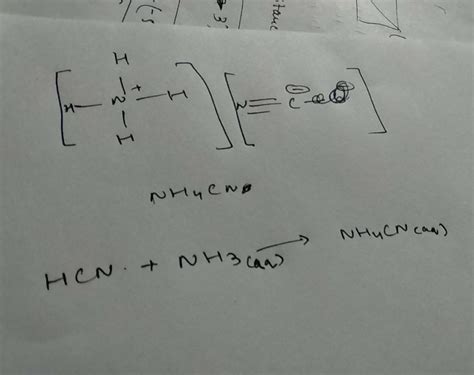 H
[H — N⁺ — H] [N ≡ C⊖ —]
H
NH4CN
HCN + NH3(aq) → NH4CN(aq)